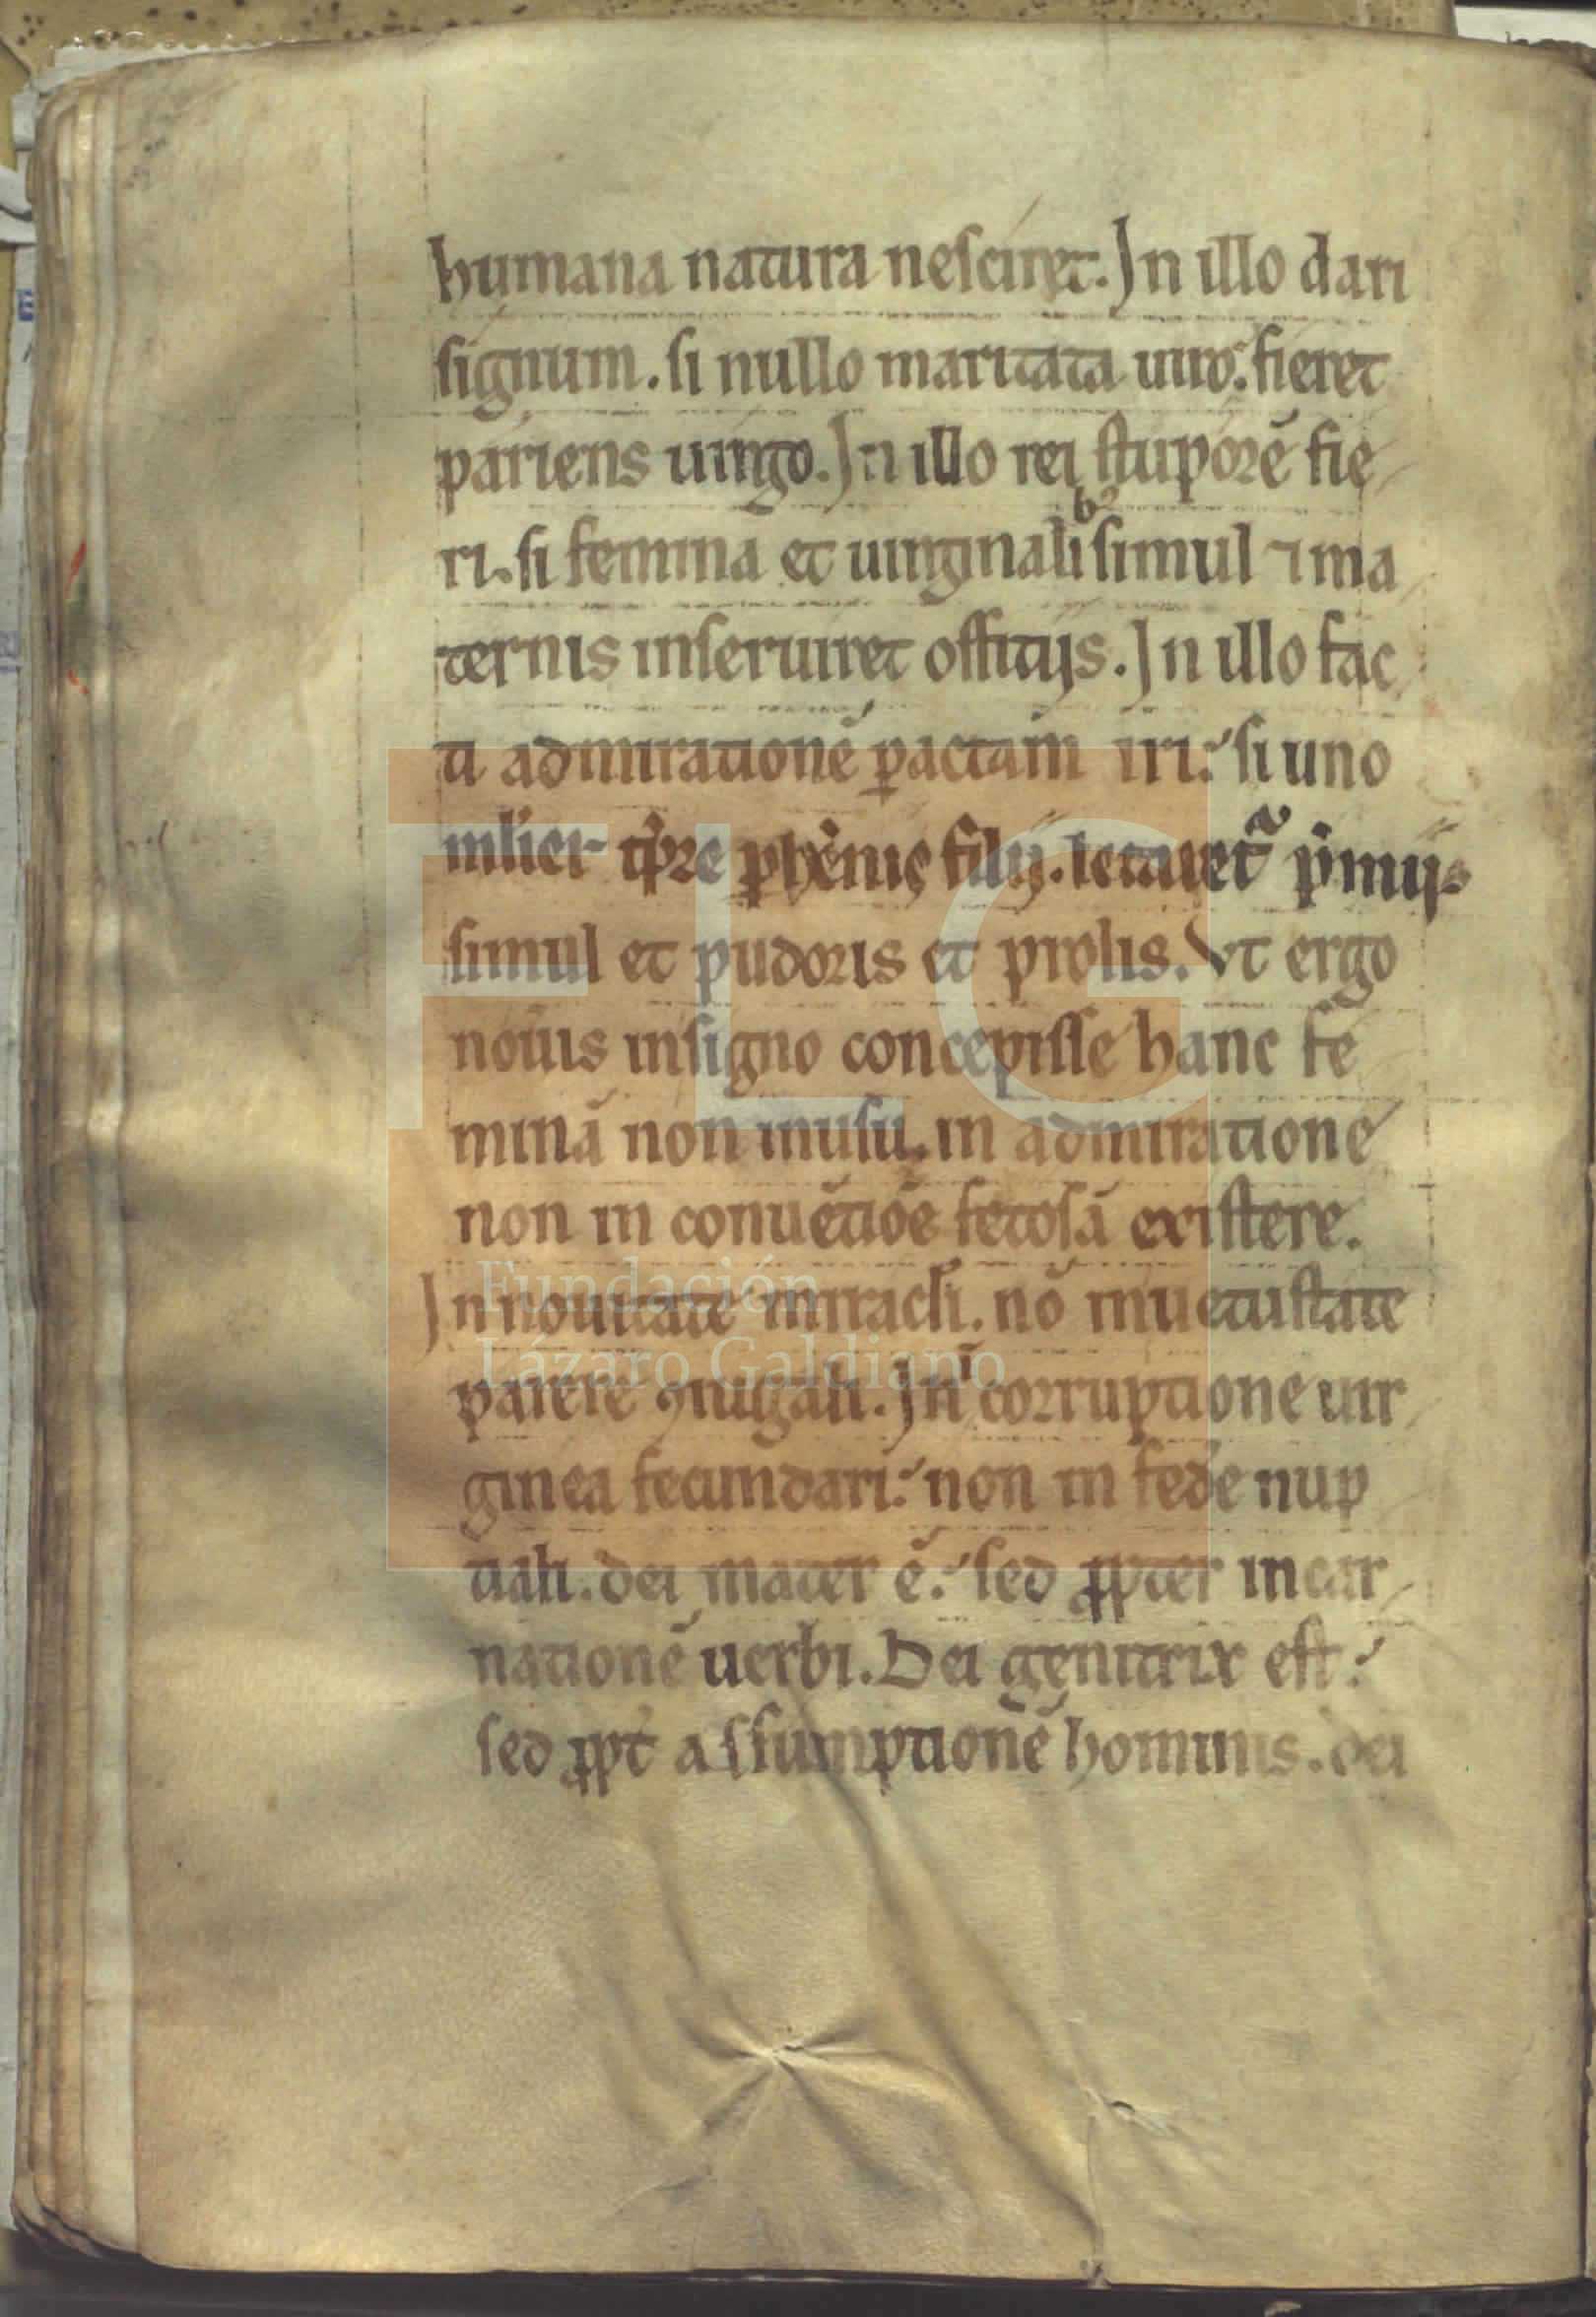 humana natura nesciret. In illo dari
signum. si nullo maritata uiro. fieret
pariens uirgo. In illo rei stuporē fie
ri. si femina et uirginalibꝰ simul ⁊ ma
ternis inseruiret offitijs. In illo fac
ti admirationē ꝑactam iri. si uno
mulier filij. letaret̃ p̄mijs
simul et pudoris et prolis. Vt ergo
nouis in signo concepisse hanc fe
minā non in usu. in admiratione
non in conuētiōe fetosā existere.
In nouitate miracl̄i. nō in uetustate
parere ꝯiugali. In corruptione uir
ginea fecundari. non in fede nup
tiali. dei mater ē. sed ꝓpter incar
nationē uerbi. Dei genitrix est.
sed ꝓpt̄ assumptionē hominis. dei
FLG
Fundación
Lázaro Galdiano